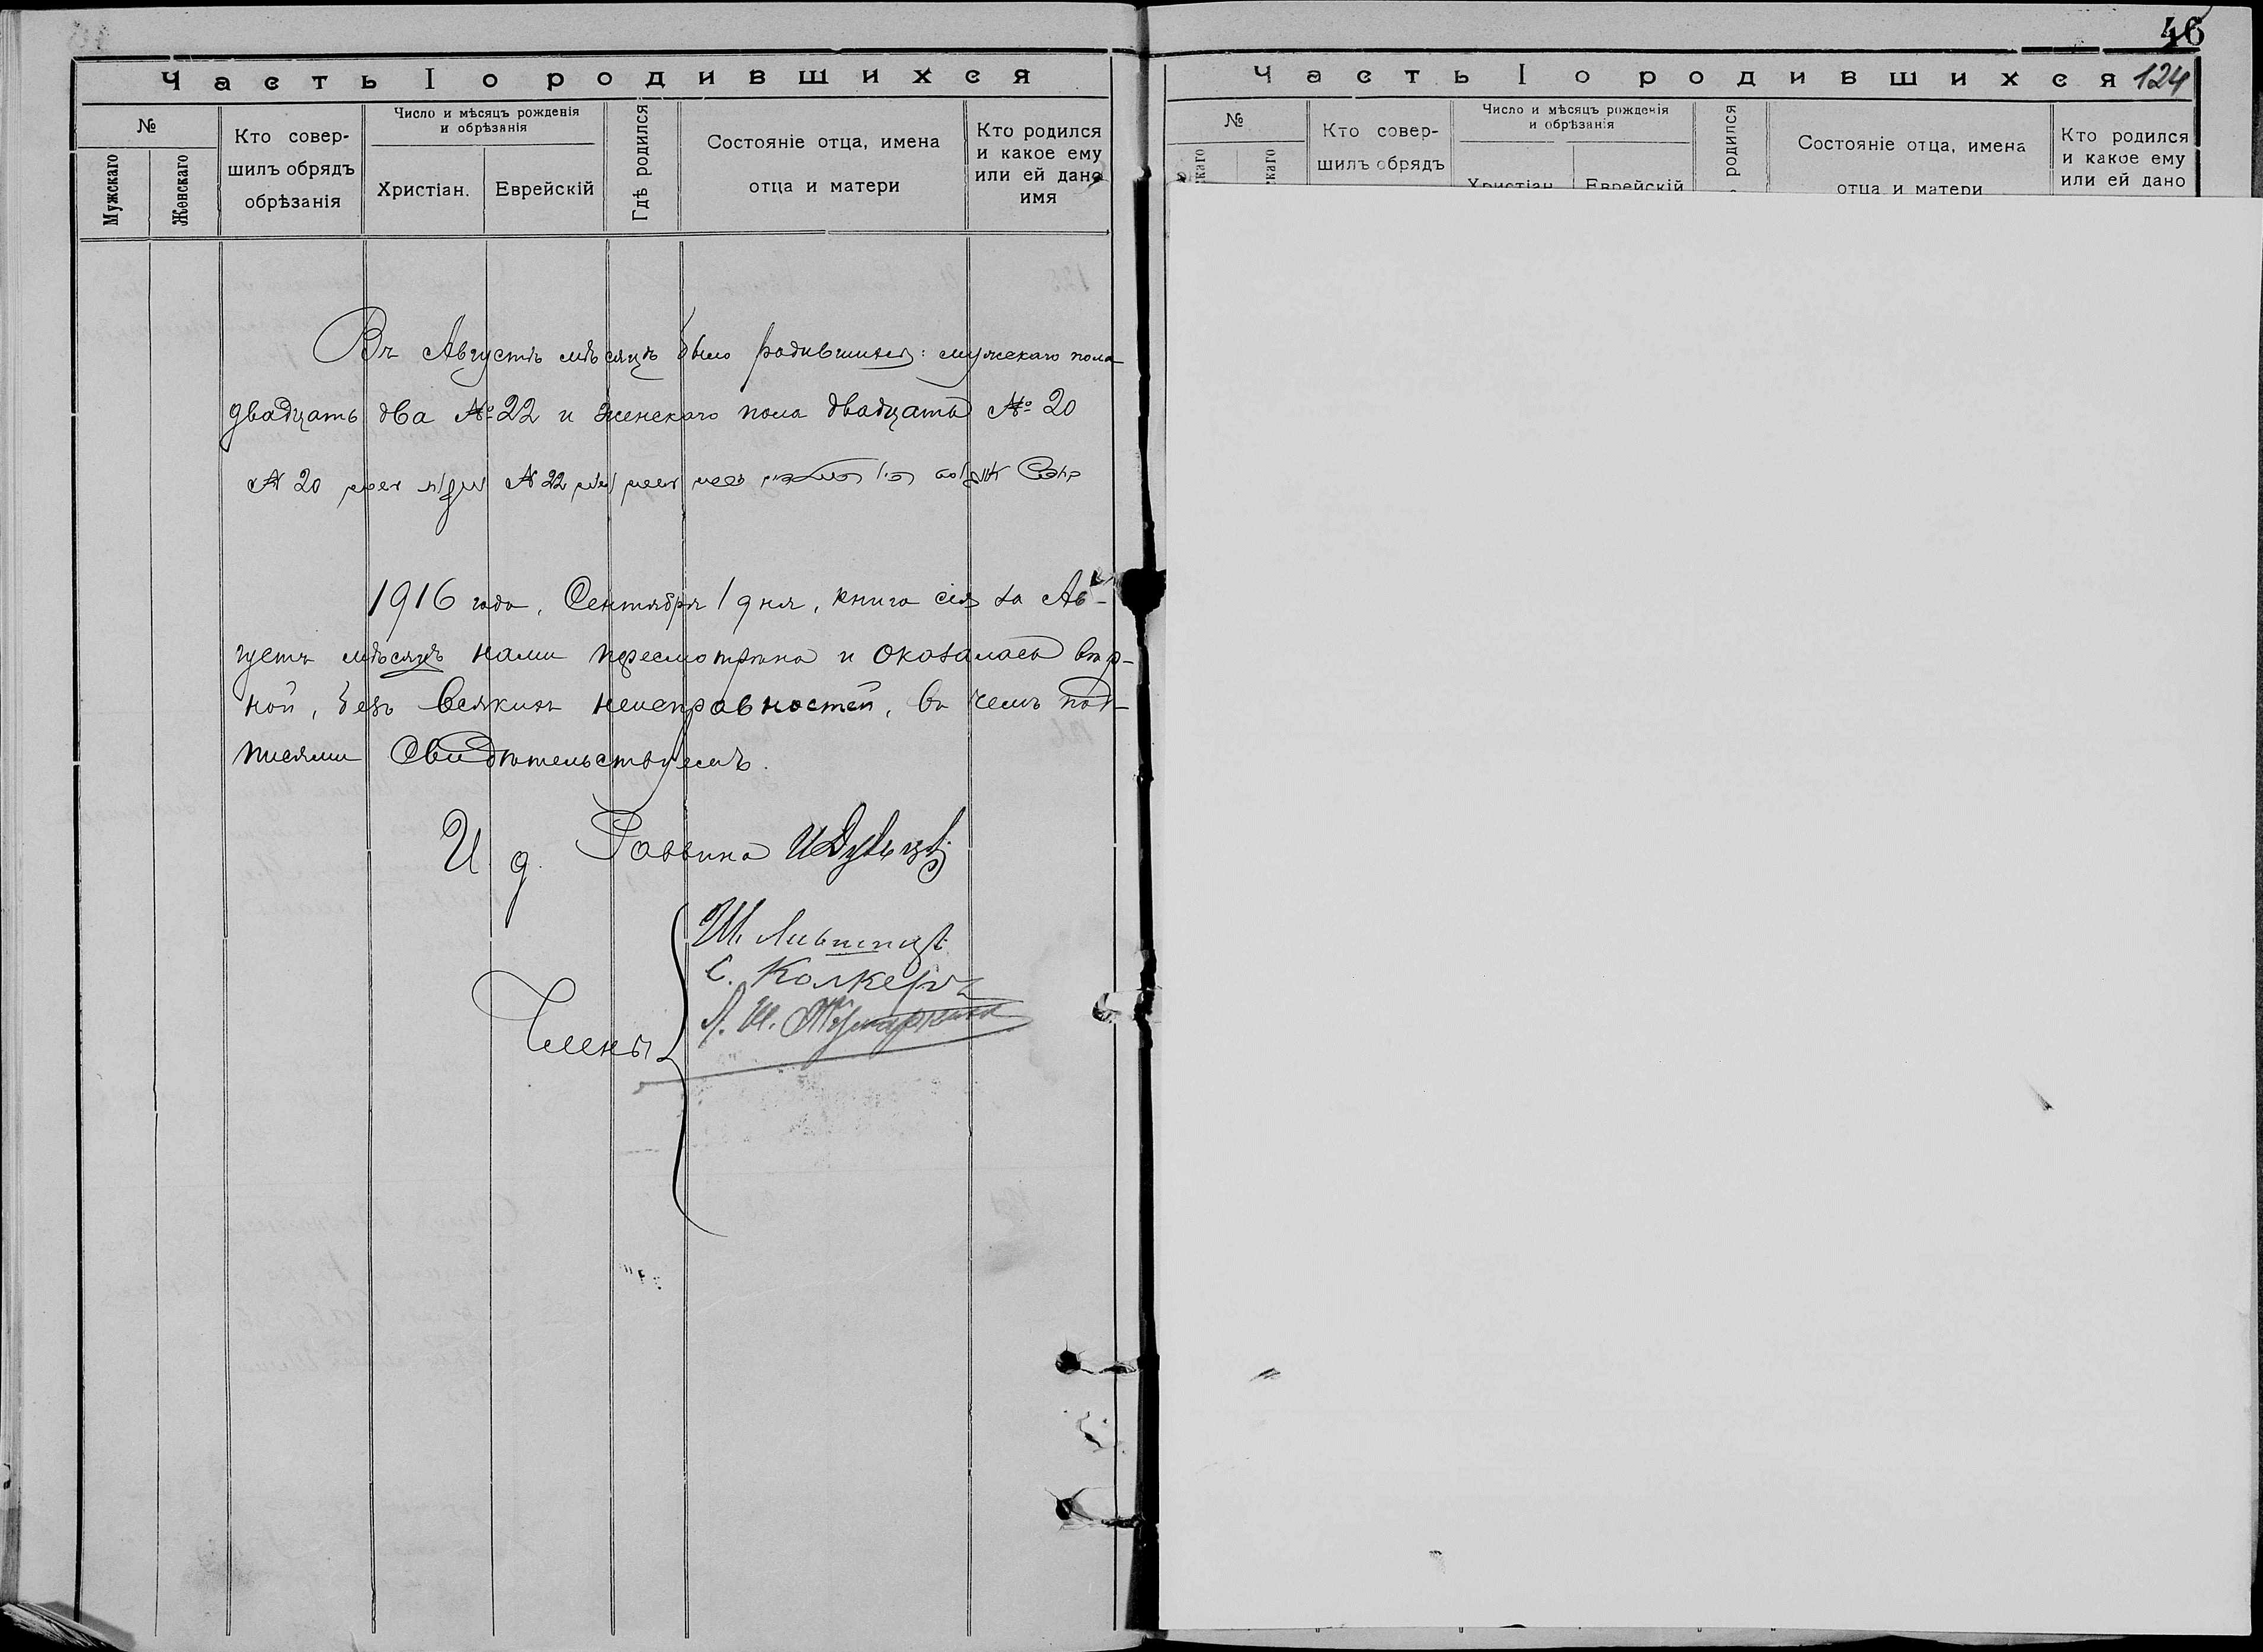 Часть I о родившихся
№
Мужскаго
Женскаго
Кто совер-
шилъ обрядъ
обрѣзанія
Число и мѣсяцъ рожденія
и обрѣзанія
Христіан.
Еврейскій
Гдѣ родился
Состояніе отца, имена
отца и матери
Кто родился
и какое ему
или ей дано
имя
Въ Августѣ мѣсяцѣ было родившихся: мужскаго пола
двадцать два № 22 и женскаго пола двадцать № 20
№ 20 № 22
1916 года, Сентября 1 дня, книга сія за Ав-
густъ мѣсяцъ нами пресмотрѣна и оказалась вѣр-
ной, безъ всякихъ неисправностей, въ чемъ под-
писями свидѣтельствуемъ.
И. д. Раввина
Члены
Ш. Лившицъ
С. Колкеръ
46
Часть I о родившихся 124
№
скаго
скаго
Кто совер-
шилъ обрядъ
Число и мѣсяцъ рожденія
и обрѣзанія
Христіан.
Еврейскій
родился
Состояніе отца, имена
отца и матери
Кто родился
и какое ему
или ей дано